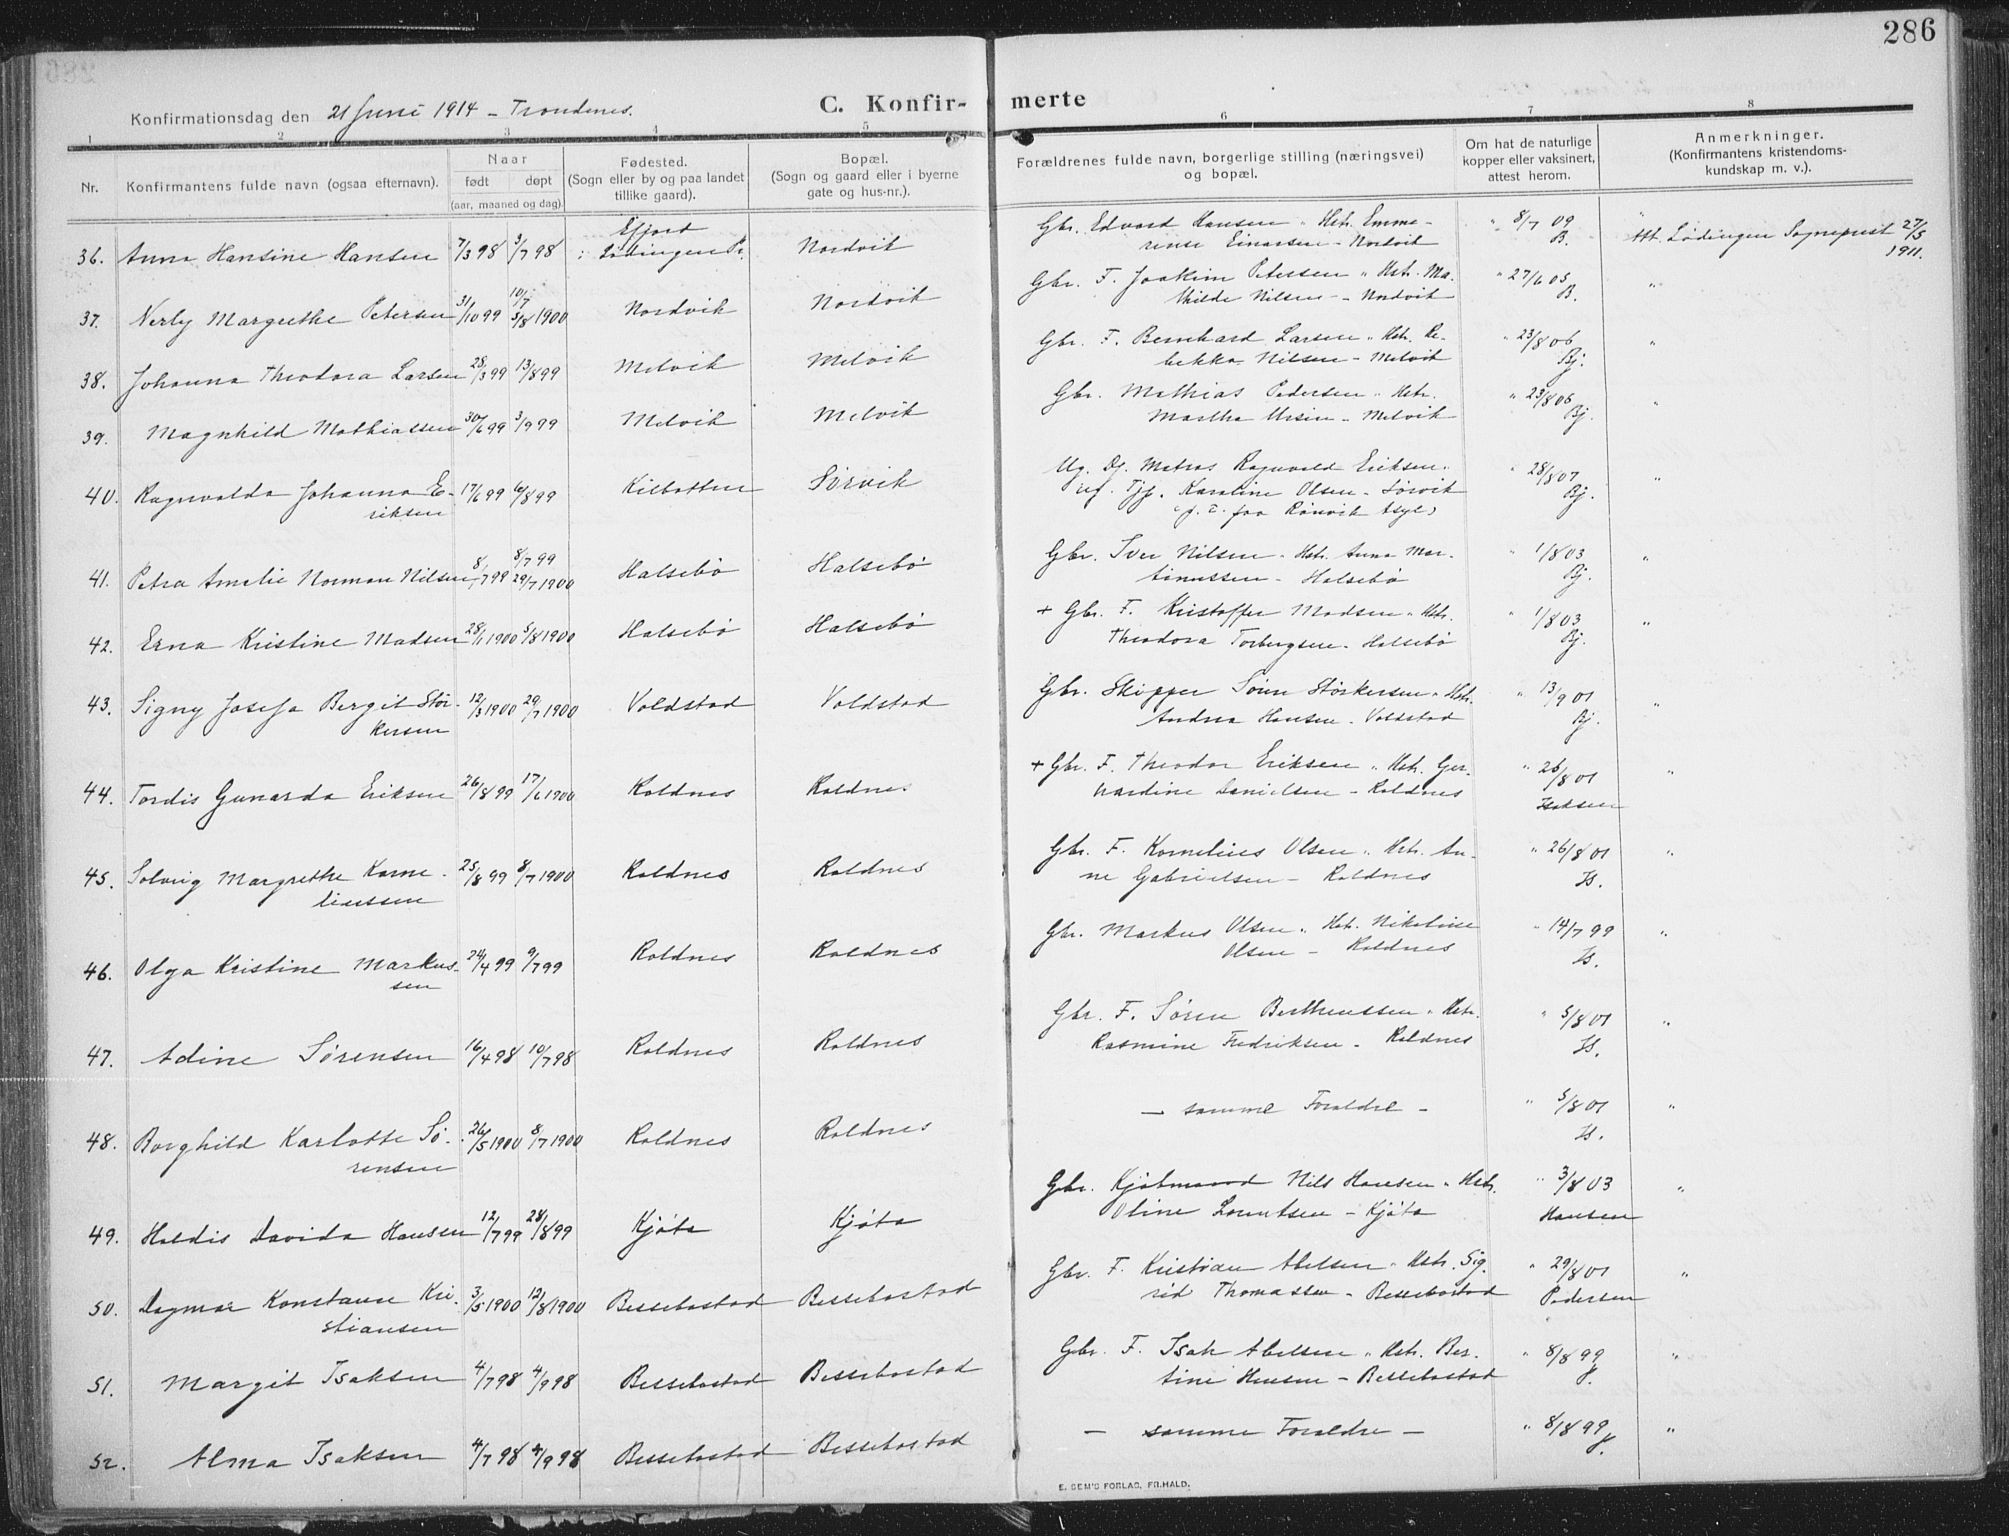 286
Konfirmationsdag den 21 Juni 1914 - Trondenes.
C. Konfir- merte
1 2 3 4 5 6 7 8
Nr.
Konfirmantens fulde navn (ogsaa efternavn).
Naar
født døpt
(aar, maaned og dag).
Fødested.
(Sogn eller by og paa landet
tillike gaard).
Bopæl.
(Sogn og gaard eller i byerne
gate og hus-nr.).
Forældrenes fulde navn, borgerlige stilling (næringsvei)
og bopæl.
Om hat de naturlige
kopper eller vaksinert,
attest herom.
Anmerkninger.
(Konfirmantens kristendoms-
kundskap m. v.).
36. Anna Hansine Hansen 7/3 98 3/7 98 Efjord Lødingen Pr. Nordvik
Gbr. Edvard Hansen " Hstr. Emme- " 8/7 09 "
rense Einarsen - Nordvik B. Att. Lødingen Sogneprest 27/5 1911.
37. Nerly Margrethe Petersen 31/10 99 10/7 5/8 1900 Nordvik Nordvik
Gbr. F. Joakim Petersen " Hstr. Ma- " 27/6 05 "
thilde Nilsen - Nordvik B.
38. Johanna Theodora Larsen 28/3 99 13/8 99 Melvik Melvik
Gbr. F. Bernhard Larsen " Hstr. Re- " 23/8 06 "
bekka Nilsen - Melvik Bj.
39. Magnhild Mathiassen 30/6 99 3/9 99 Melvik Melvik
Gbr. Mathias Pedersen " Hstr. " 23/8 06 "
Martha Ursin - Melvik Bj.
40. Ragnvalda Johanna E- 17/6 99 6/8 99 Kilbotten Sørvik
riksen
Ug. Dj. Matros Ragnvald Eriksen " 28/8 07 "
ug. Tjp. Karoline Olsen - Sørvik Bj.
paa Rønvik Asyl)
41. Petra Amelie Norman Nilsen 8/7 99 8/7 99 29/7 1900 Halsebø Halsebø
Gbr. Iver Nilsen " Hstr. Anna Mar- " 1/8 03 "
tinussen - Halsebø Bj.
42. Erna Kristine Madsen 28/1 1900 5/8 1900 Halsebø Halsebø
+ Gbr. F. Kristoffer Madsen " Hstr. " 1/8 03 "
Theodora Torbergsen - Halsebø Bj.
43. Signy Josefa Bergit Stør- 12/3 1900 29/7 1900 Voldstad Voldstad
kersen
Gbr. Skipper Søren Størkersen " Hstr. " 13/9 01 "
Andrea Hansen - Voldstad Bj.
44. Tordis Gunarda Eriksen 26/8 99 17/6 1900 Roldnes Roldnes
+ Gbr. F. Theodor Eriksen " Hstr. Ger- " 26/8 01 "
hardine Danielsen - Roldnes Isaksen
45. Solveig Margrethe Korne- 25/8 99 8/7 1900 Roldnes Roldnes
liussen
Gbr. F. Kornelius Olsen " Hstr. An- " 26/8 01 "
ne Gabrielsen - Roldnes Is.
46. Olga Kristine Markus- 24/4 99 9/7 99 Roldnes Roldnes
sen
Gbr. Markus Olsen " Hstr. Nikoline " 14/7 99 "
Olsen - Roldnes Is.
47. Adine Sørensen 16/4 98 10/7 98 Roldnes Roldnes
Gbr. F. Søren Berthenssen " Hstr. " 5/8 01 "
Rasmine Fredriksen - Roldnes Is.
48. Borghild Karlotte Sø- 26/5 1900 8/7 1900 Roldnes Roldnes
rensen
- samme Foreldre - " 5/8 01 "
Is.
49. Haldis Davida Hansen 12/7 99 28/8 99 Kjøta Kjøta
Gbr. Kjøbmand Nils Hansen " Hstr. " 3/8 03 "
Oline Lorentsen - Kjøta Hansen
50. Dagmar Konstanse Kri- 3/5 1900 12/8 1900 Bessebostad Bessebostad
stiansen
Gbr. F. Kristian Abelsen " Hstr. Sig- " 29/8 01 "
rid Thomassen - Bessebostad Pedersen
51. Margit Isaksen 4/7 98 4/9 98 Bessebostad Bessebostad
Gbr. F. Isak Abelsen " Hstr. Ber- " 8/8 99 "
tine Hensen - Bessebostad J.
52. Alma Isaksen 4/7 98 4/9 98 Bessebostad Bessebostad
- samme Foreldre - " 8/8 99 "
J.
E. SEM'S FORLAG, FR.HALD.